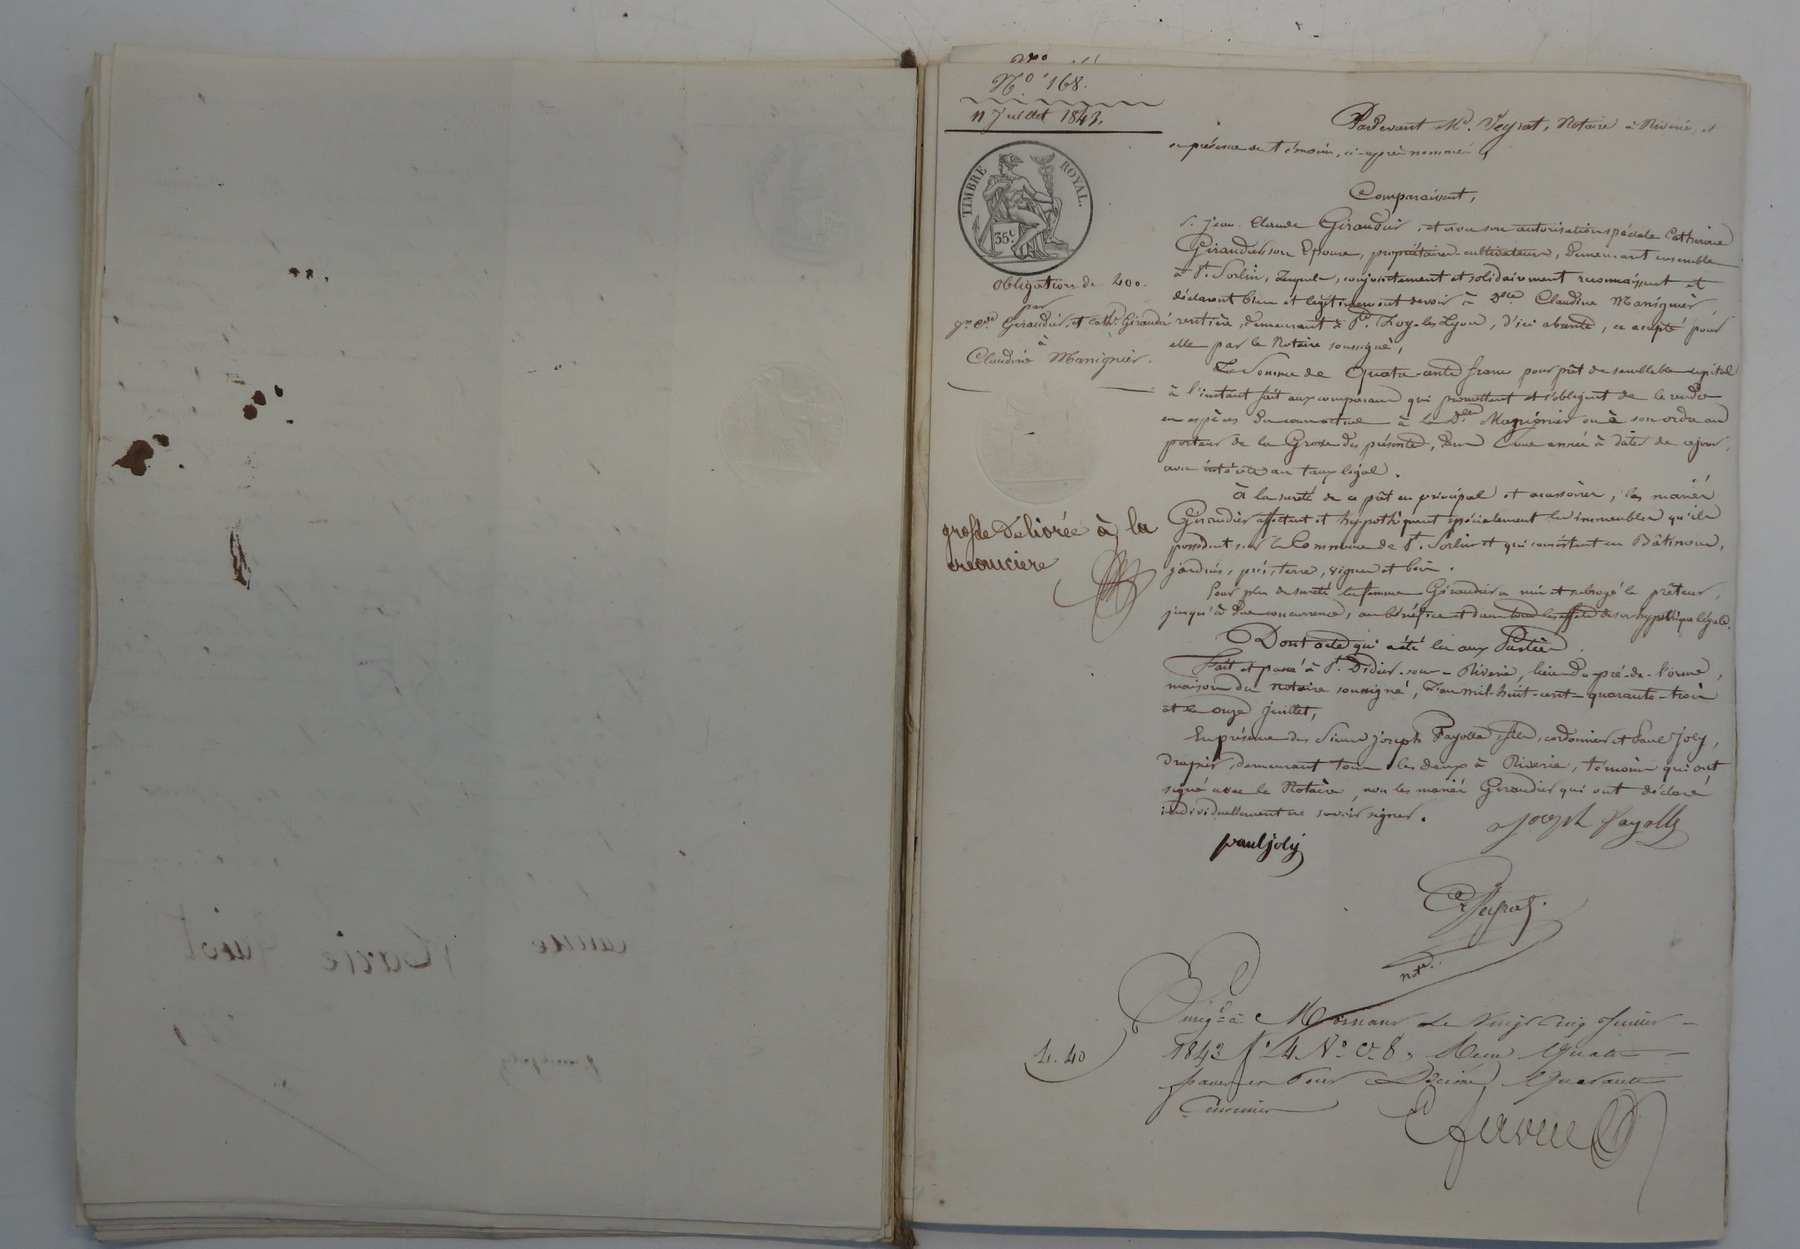 N.º 168.
11 Juillet 1843.
TIMBRE ROYAL.
35 c.
Obligation de 400.
par
Jn. Cde. Giraudier, et Cath. Giraudier
à
Claudine Manignier.
grosse délivrée à la
créancière
Pardevant Me. Veyrat, Notaire à Riverie, et
en présence des témoins, ci-après nommés,
Comparaissent,
S. Jean-Claude Giraudier, et avec son autorisation spéciale Catherine
Giraudier son Epouse, propriétaires cultivateurs, demeurant ensemble
à St. Sorlin, Lesquels, conjointement et solidairement reconnaissent et
déclarent bien et légitimement devoir à Dlle Claudine Manignier,
rentière, demeurant à Ste. Foy-les-Lyon, d'ici absente, ce accepté pour
elle par le Notaire soussigné,
La Somme de Quatre-cents francs pour prêt de semblable capital
à l'instant fait aux comparans qui promettent et s'obligent de le rendre
en espèces du cours actuel à la Dlle. Manignier ou à son ordre au
porteur de la Grosse des présentes, dans une année à dater de ce jour,
avec intérêts au taux légal.
À la sureté de ce prêt en principal et accessoires, les mariés
Giraudier affectent et hypothèquent spécialement les immeubles qu'ils
possèdent sur la Commune de St. Sorlin et qui consistent en Bâtimens,
jardins, prés, terres, vignes et bois.
Pour plus de sureté la femme Giraudier a mis et subrogé le prêteur,
jusqu'à due concurrence, au bénéfice et dans tous les effets de son hypothèque légale.
Dont acte qui a été lu aux Parties.
Fait et passé à St. Didier-sous-Riverie, lieu du pré-de-l'orme,
maison du notaire soussigné, L'an mil-huit-cent-quarante-trois
et le onze juillet,
En présence des Sieurs Joseph Fayolle fils, cordonnier et Paul Joly,
drapier, demeurant tous les deux à Riverie, témoins qui ont
signé avec le Notaire, non les mariés Giraudier qui ont déclaré
individuellement ne savoir signer.
Joseph Fayolle
paul joly
Veyrat
notre.
Enregé. à Mornant le Vingt cinq Juillet
1843 fo. 4 Ro. Ce. 8. Reçu Quatre
4. 40
francs en Sus Décime Quarante
Centimes